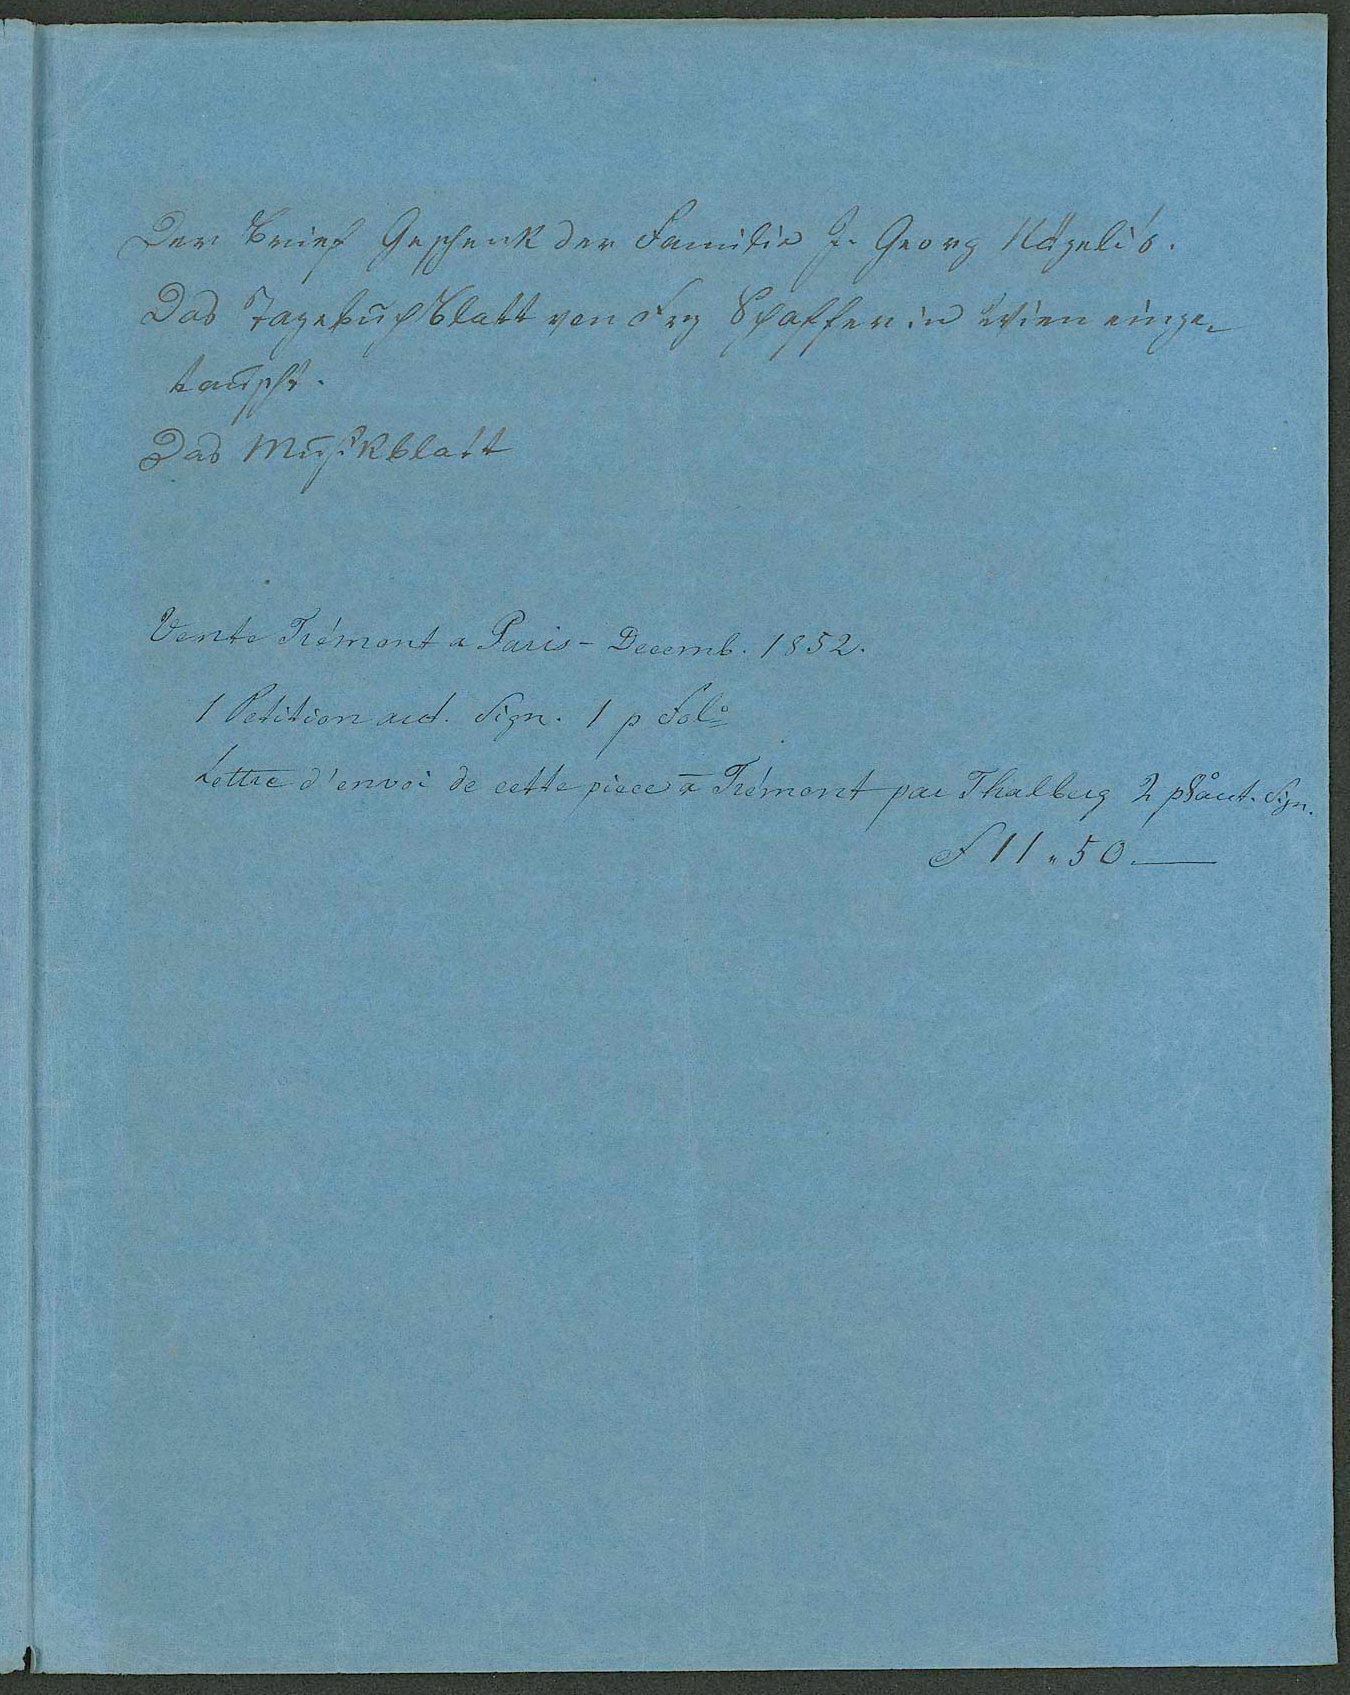 Der Brief Geschenk der Familie J. Georg Nägeli's.
Das Tagebuchblatt von Frz Schaffer in Wien einge-
tauscht.
Das Musikblatt
Vente Trémont a Paris - Decemb. 1852.
1 Petition aut. Sign. 1 p Folº
Lettre d'envoi de cette piece a Trémont par Thalberg 2 p 8º aut. Sign.
F 11 " 50 —